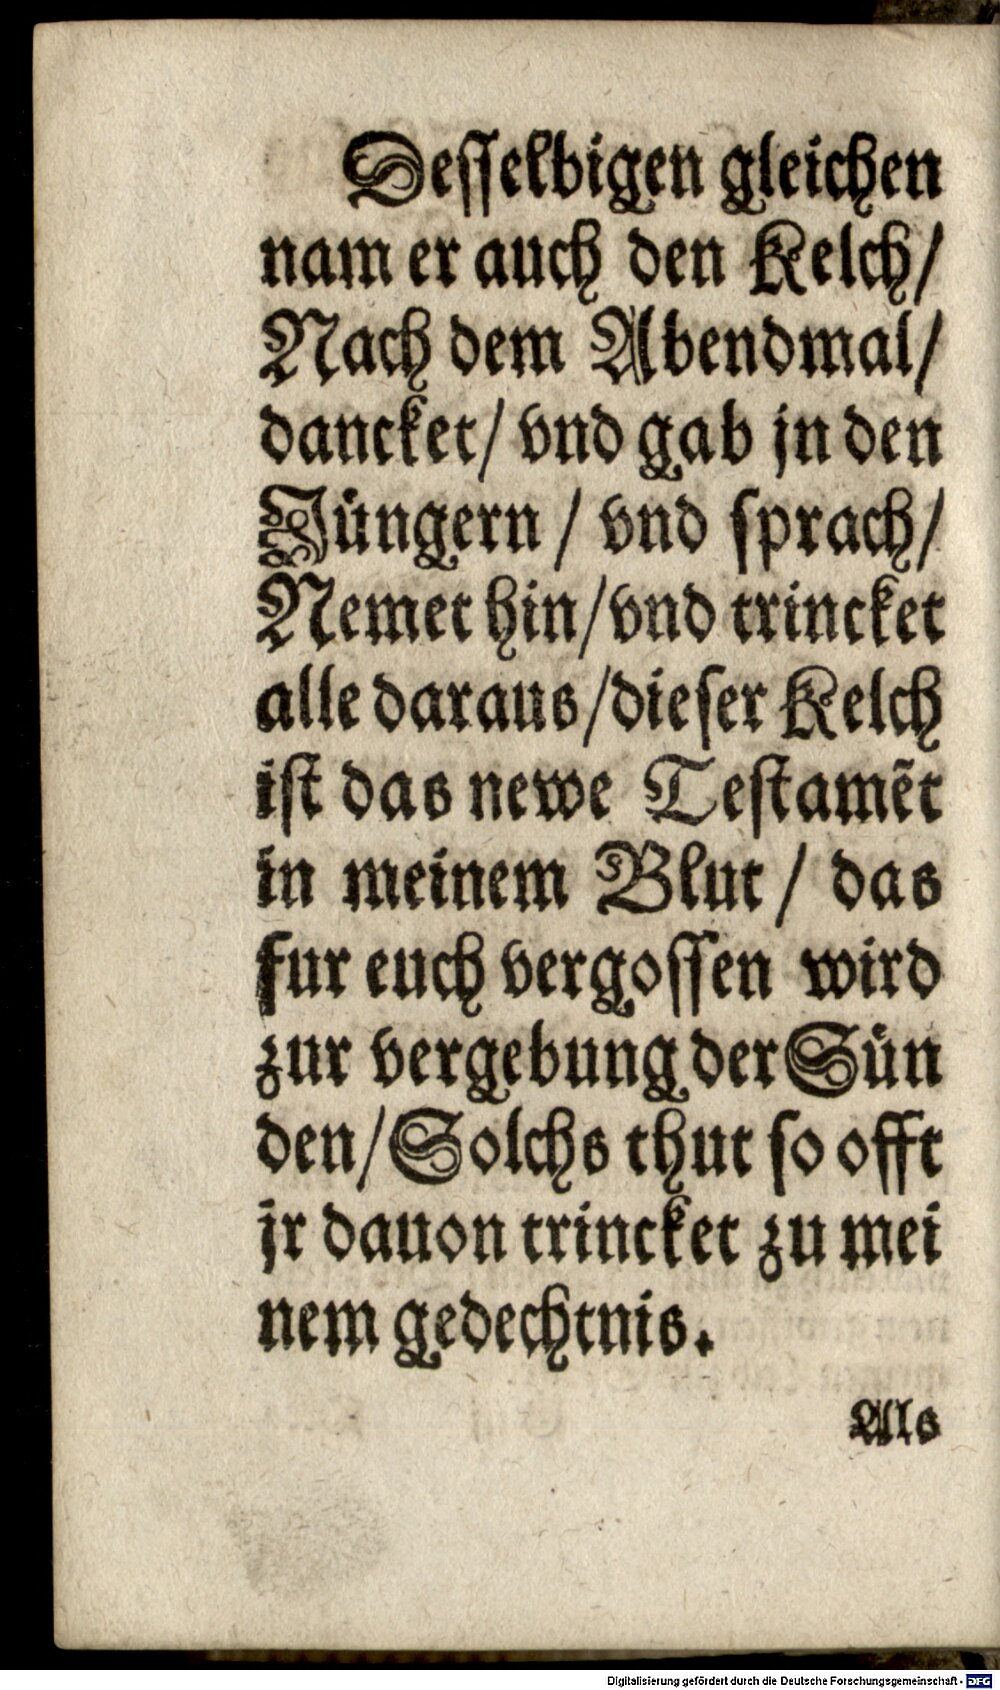 Desselbigen gleichen
nam er auch den Kelch/
Nach dem Abendmal/
dancket/ vnd gab jn den
Jüngern / vnd sprach/
Nemet hin/vnd trincket
alle daraus/dieser Kelch
ist das newe Testamẽt
in meinem Blut / das
fur euch vergossen wird
zur vergebung der Sün
den/Solchs thut so offt
jr dauon trincket zu mei
nem gedechtnis.
Als
Digitalisierung gefördert durch die Deutsche Forschungsgemeinschaft - DFG